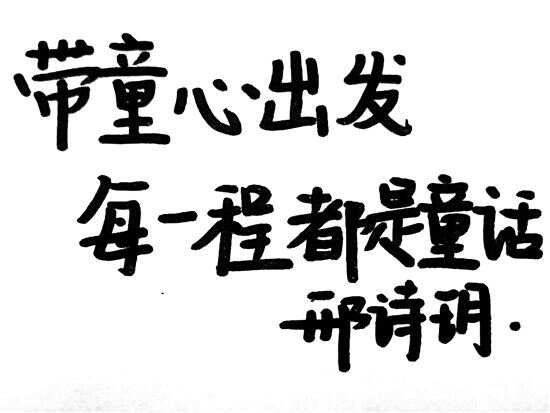 带童心出发
每一程都是童话
邢诗玥.